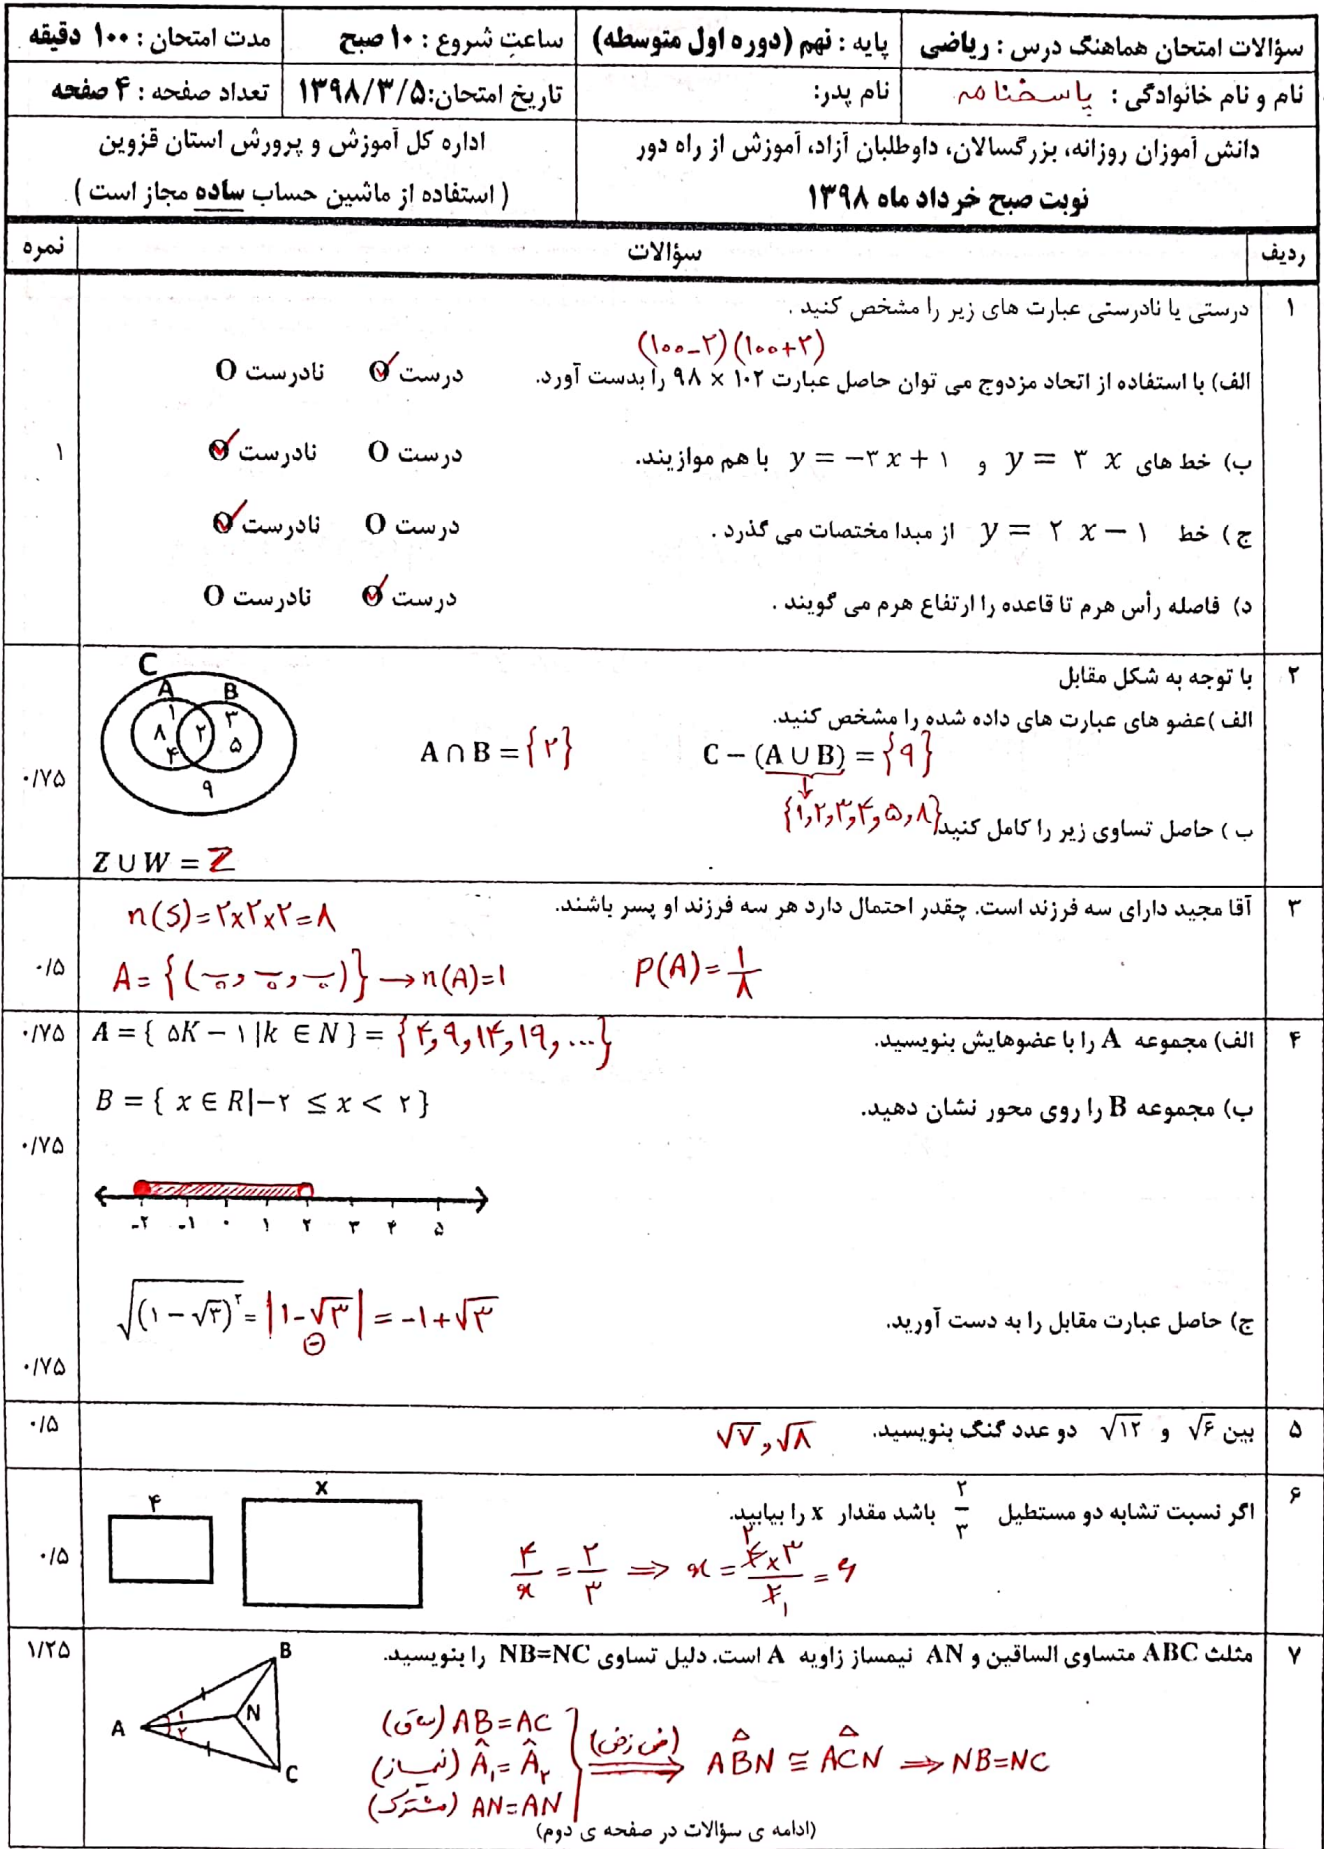 سؤالات امتحان هماهنگ درس : ریاضی
پایه : نهم (دوره اول متوسطه)
ساعتِ شروع : ۱۰ صبح
مدت امتحان : ۱۰۰ دقیقه
نام و نام خانوادگی : پاسخنامه
نام پدر:
تاریخ امتحان:۱۳۹۸/۳/۵
تعداد صفحه : ۴ صفحه
دانش آموزان روزانه، بزرگسالان، داوطلبان آزاد، آموزش از راه دور
نوبت صبح خرداد ماه ۱۳۹۸
اداره کل آموزش و پرورش استان قزوین
( استفاده از ماشین حساب ساده مجاز است )
ردیف سؤالات نمره
۱ درستی یا نادرستی عبارت های زیر را مشخص کنید .
(۱۰۰-۲)(۱۰۰+۲)
الف) با استفاده از اتحاد مزدوج می توان حاصل عبارت ۹۸ × ۱۰۲ را بدست آورد. درست ✓ نادرست O
ب) خط های y = ۳ x و y = −۳ x + ۱ با هم موازیند. درست O نادرست ✓ ۱
ج ) خط y = ۲ x − ۱ از مبدا مختصات می گذرد . درست O نادرست ✓
د) فاصله رأس هرم تا قاعده را ارتفاع هرم می گویند . درست ✓ نادرست O
۲ با توجه به شکل مقابل
الف )عضو های عبارت های داده شده را مشخص کنید.
C − (A ∪ B) = {۹} A ∩ B = {۲}
{۱,۲,۳,۴,۵,۸}
ب ) حاصل تساوی زیر را کامل کنید
Z ∪ W = Z
C A B ۱ ۸ ۴ ۲ ۳ ۵ ۹
۰/۷۵
۳ آقا مجید دارای سه فرزند است. چقدر احتمال دارد هر سه فرزند او پسر باشند.
n(S)=۲x۲x۲=۸
A = {(پ,پ,پ)} → n(A)=۱ P(A)=۱/۸
۰/۵
۴ الف) مجموعه A را با عضوهایش بنویسید. A = { ۵K − ۱ |k ∈ N } = {۴,۹,۱۴,۱۹,...} ۰/۷۵
ب) مجموعه B را روی محور نشان دهید. B = { x ∈ R|−۲ ≤ x < ۲ }
۰/۷۵
-۲ -۱ ۰ ۱ ۲ ۳ ۴ ۵
ج) حاصل عبارت مقابل را به دست آورید. √(۱ − √۳)۲ = |۱-√۳| = -۱+√۳
⊖
۰/۷۵
۵ بین √۶ و √۱۲ دو عدد گنگ بنویسید. √۷ , √۸ ۰/۵
۶ اگر نسبت تشابه دو مستطیل ۲/۳ باشد مقدار x را بیابید.
۴ x
۴/x = ۲/۳ ⟹ x = ۴x۳/۲ = ۶
۲ ۱
۰/۵
۷ مثلث ABC متساوی الساقین و AN نیمساز زاویه A است. دلیل تساوی NB=NC را بنویسید. ۱/۲۵
A B C N ۱ ۲
AB=AC (ساق)
Â₁=Â₂ (نیمساز)
AN=AN (مشترک)
(ض ز ض) ⟹ ABN ≅ ACN ⟹ NB=NC
(ادامه ی سؤالات در صفحه ی دوم)